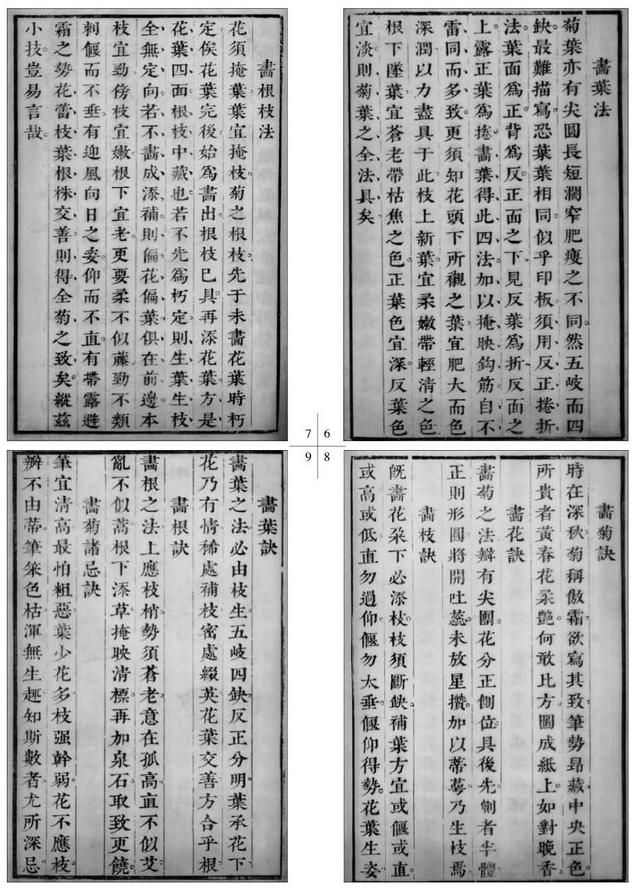 畫葉法
菊葉亦有尖圓長短濶窄肥瘦之不同。然五岐而四
缺。最難描寫恐葉葉相同似乎印板須用反正捲折
法。葉面爲正背爲反正面之下見反葉爲折反面之
上露正葉爲捲。畫葉得此四法加以掩映鈎筋自不
雷同而多致。更須知花頭下所襯之葉宜肥大而色
深潤以力盡具于此枝上新葉宜柔嫩帶輕清之色
根下墜葉宜蒼老帶枯焦之色正葉色宜深。反葉色
宜淡則菊葉之全法具矣
畫根枝法
花須掩葉葉宜掩枝。菊之根枝先于未畫花葉時朽
定俟花葉完後始爲畫出根枝已具再添花葉方是
花葉四面根枝中藏也。若不先爲朽定則生葉生枝
全無定向若不畫成添補則偏花偏葉俱在前邊本
枝宜勁傍枝宜嫩根下宜老。更要柔不似藤勁不類
刺偃而不垂。有迎風向日之姿仰而不直。有帶露避
霜之勢花蕾枝葉根株交善則得全菊之致矣。縱茲
小技豈易言哉。
畫菊訣
時在深秋菊稱傲霜。欲寫其致筆勢昂藏中央正色。
所貴者黃春花柔艷。何敢比方圖成紙上。如對晚香
畫花訣
畫菊之法瓣有尖團。花分正側位。具後先側者半體
正則形圓將開吐蕊。未放星攢。加以蒂萼乃生枝焉
畫枝訣
旣畫花朶下必添枝。枝須斷缺。補葉方宜或偃或直。
或高或低直勿過仰。偃勿太垂。偃仰得勢。花葉生姿
畫葉訣
畫葉之法必由枝生。五岐四缺反正分明葉承花下
花乃有情稀處補枝密處綴英花葉交善方合乎根
畫根訣
畫根之法上應枝梢勢須蒼老。意在孤高。直不似艾
亂不似蒿根下添草掩映清標。再加泉石取致更饒
畫菊諸忌訣
筆宜清高最怕粗惡葉少花多枝强幹弱。花不應枝
瓣不由蒂。筆筞色枯渾無生趣。知斯數者尤所深忌
7 6
9 8